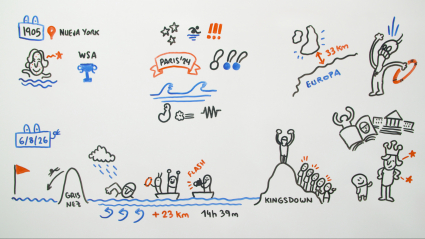 1905
NUEVA YORK
WSA
!!!
PARIS'24
33 KM
EUROPA
6/8/26
GRIS
NEZ
+ 23 KM
14h 39m
FLASH
KINGSDOWN